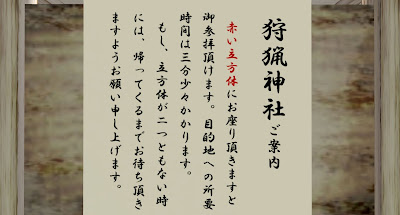 狩猟神社ご案内
赤い立方体にお座り頂きますと
御参拝頂けます。目的地への所要
時間は三分少々かかります。
もし、立方体が二つともない時
には、帰ってくるまでお待ち頂き
ますようお願い申し上げます。